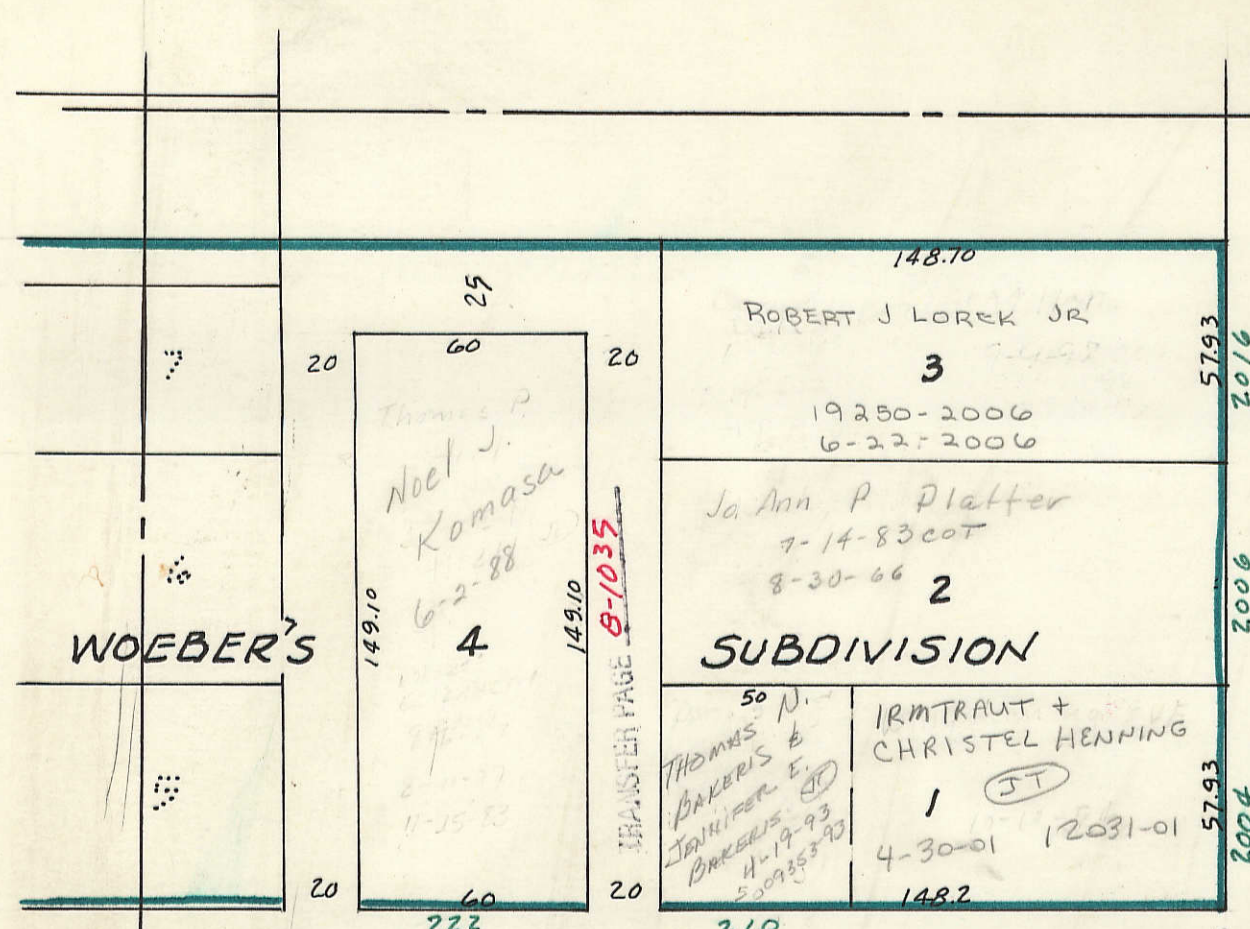 148.70
25
ROBERT J LOREK JR
57.93
2016
7
20
60
20
3
19250-2006
6-22-2006
Thomas P.
Noel J.
Komasa
6-2-88
Jo Ann P Platter
7-14-83 COT
8-30-66
2
2006
6
149.10
149.10
8-1035
TRANSFER PAGE
WOEBER'S
4
SUBDIVISION
50
THOMAS N.
BAKERIS &
JENNIFER E.
BAKERIS JT
4-19-93
5009353-93
IRMTRAUT +
CHRISTEL HENNING
1
JT
4-30-01
12031-01
57.93
2004
5
11-25-83
20
60
20
148.2
222
210